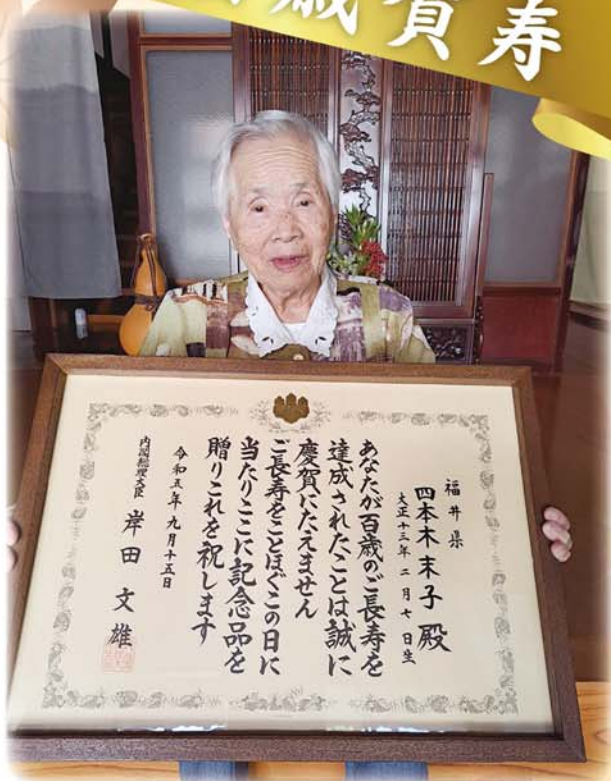 歳賀寿
福井県
四本木末子殿
大正十三年二月七日生
あなたが百歳のご長寿を
達成されたことは誠に
慶賀にたえません
ご長寿をことほぐこの日に
当たりここに記念品を
贈りこれを祝します
令和五年九月十五日
内閣総理大臣 岸田文雄